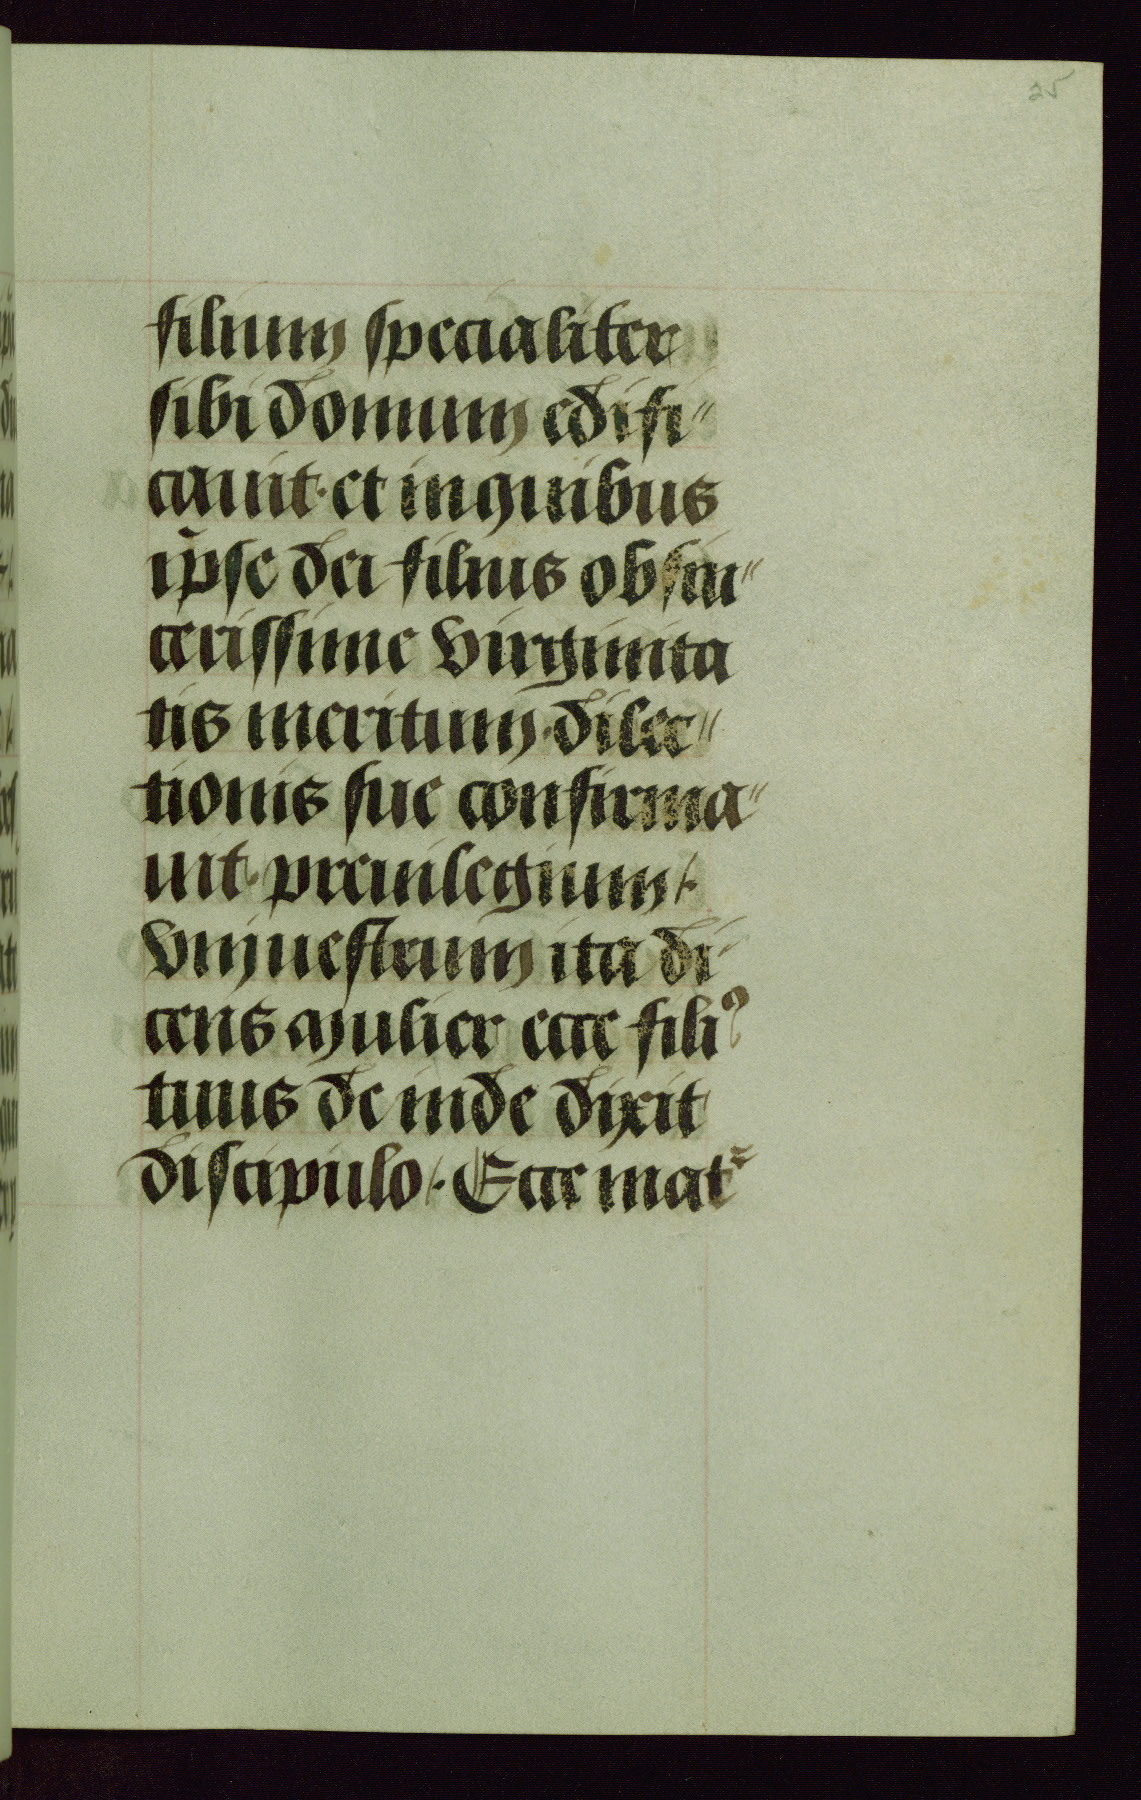 25
filium specialiter
sibi domum edifi"
cauit· et in quibus
ip̄se dei filius ob sin"
cerissime virginita
tis meritum· dilec"
tionis sue confirma"
uit· preuilegium/·
vnj uestrum ita di"
cens mulier ecce fili⁹
tuus de inde dixit
discipulo/· Ecce mat̄